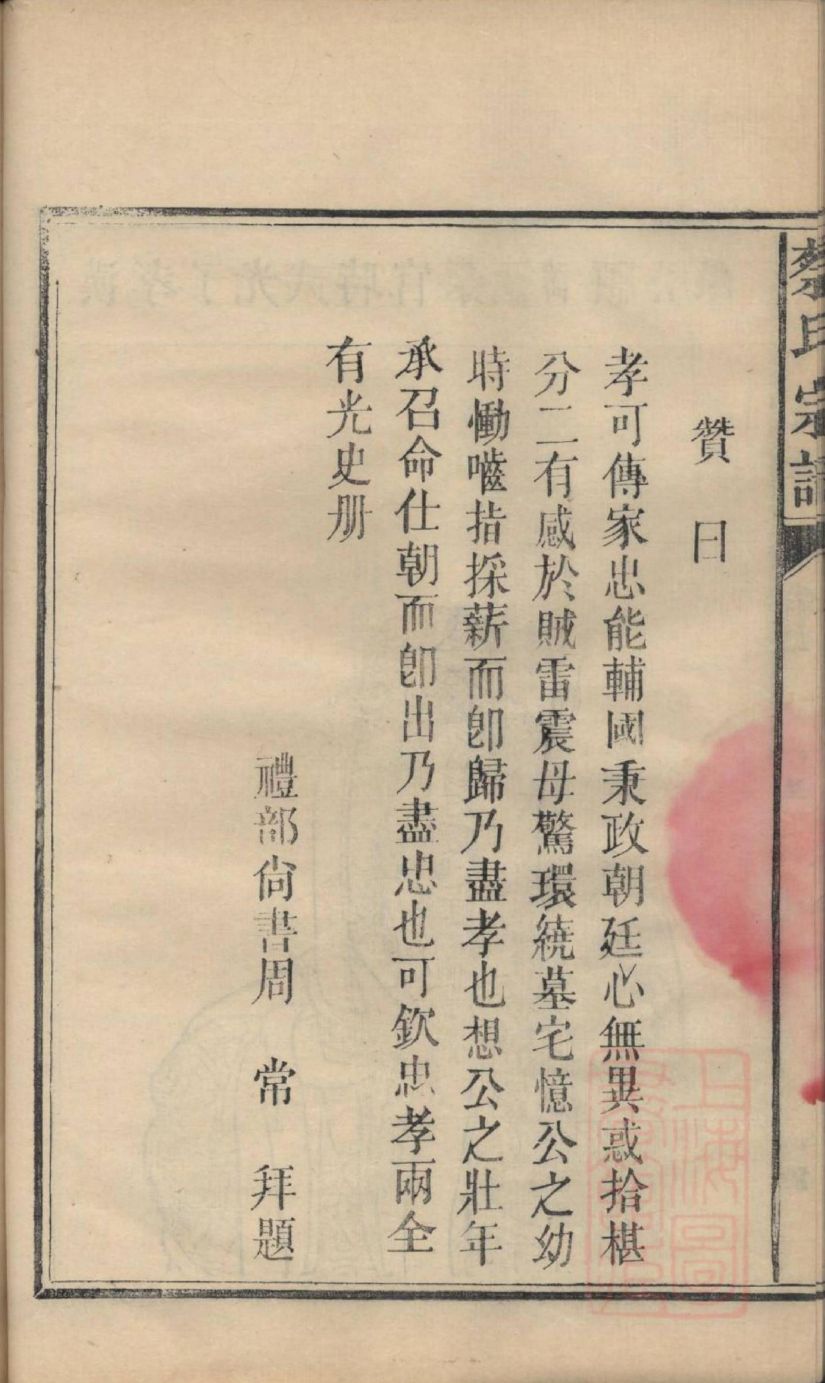 蔡氏宗譜
贊曰
孝可傳家忠能輔國秉政朝廷心無異惑拾椹
分二有感於賊雷震母驚環繞墓宅憶公之幼
時慟嚙指採薪而卽歸乃盡孝也想公之壯年
承召命仕朝而卽出乃盡忠也可欽忠孝兩全
有光史册
禮部尙書周 常 拜題